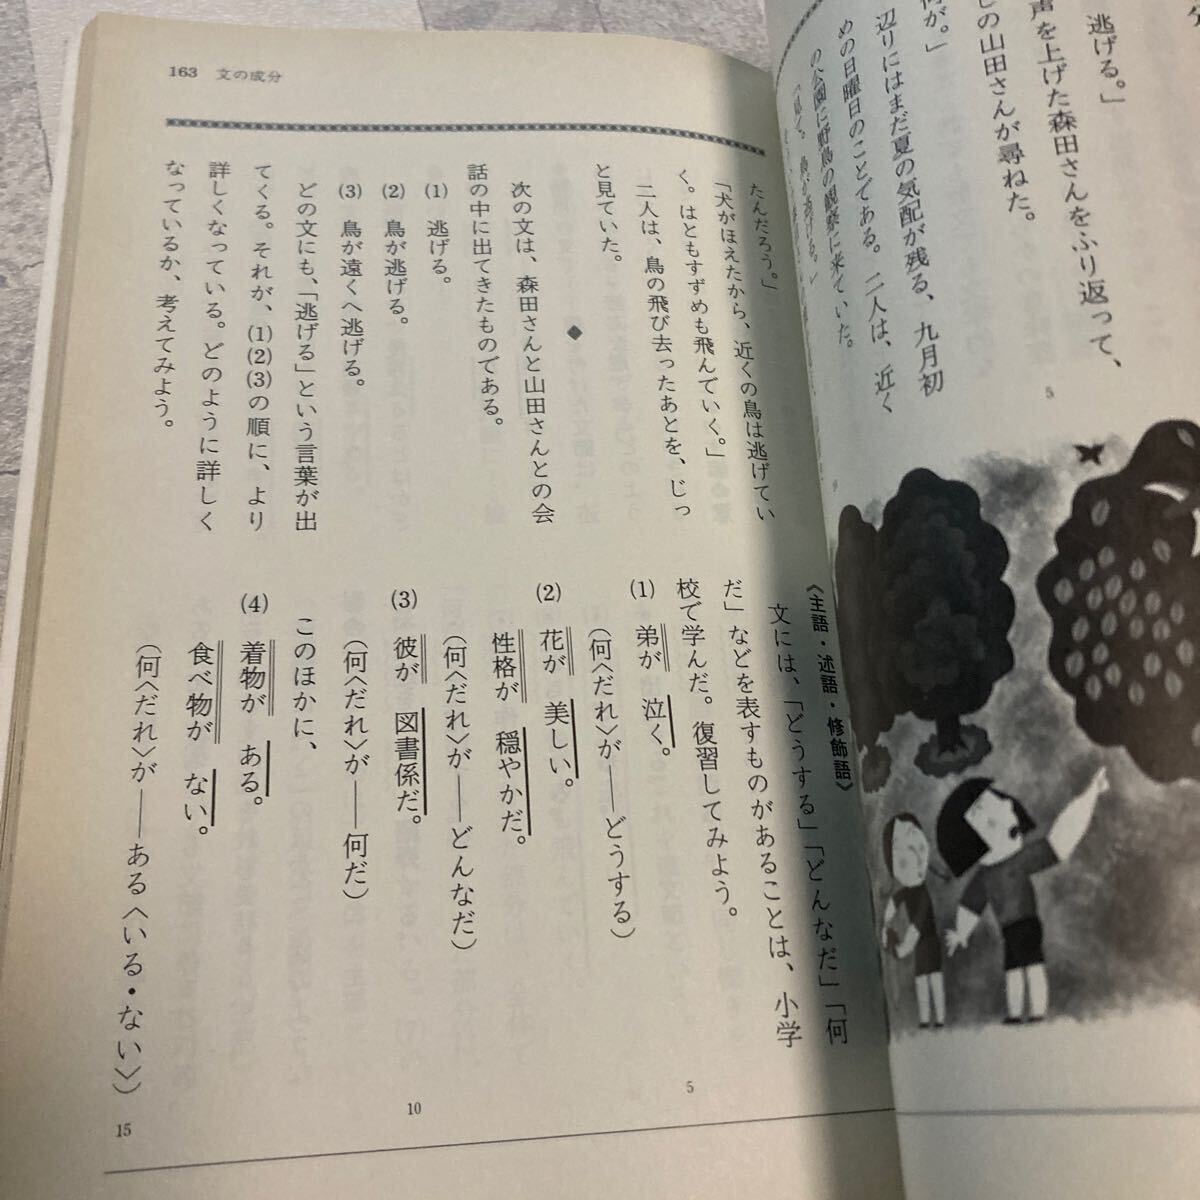 逃げる。」
声を上げた森田さんをふり返って、
しの山田さんが尋ねた。
何が。」
辺りにはまだ夏の気配が残る、九月初
めの日曜日のことである。二人は、近く
の公園に野鳥の観察に来ていた。
「見て。鳥が逃げる。」
5
163 文の成分
たんだろう。」
「犬がほえたから、近くの鳥は逃げてい
く。はともすずめも飛んでいく。」
二人は、鳥の飛び去ったあとを、じっ
と見ていた。
◆
次の文は、森田さんと山田さんとの会
話の中に出てきたものである。
(1) 逃げる。
(2) 鳥が逃げる。
(3) 鳥が遠くへ逃げる。
どの文にも、「逃げる」という言葉が出
てくる。それが、(1)(2)(3)の順に、より
詳しくなっている。どのように詳しく
なっているか、考えてみよう。
《主語・述語・修飾語》
文には、「どうする」「どんなだ」「何
だ」などを表すものがあることは、小学
校で学んだ。復習してみよう。
(1) 弟が 泣く。
(何〈だれ〉が――どうする)
(2) 花が 美しい。
性格が 穏やかだ。
(何〈だれ〉が――どんなだ)
(3) 彼が 図書係だ。
(何〈だれ〉が――何だ)
このほかに、
(4) 着物が ある。
食べ物が ない。
(何〈だれ〉が――ある〈いる・ない〉)
5
10
15